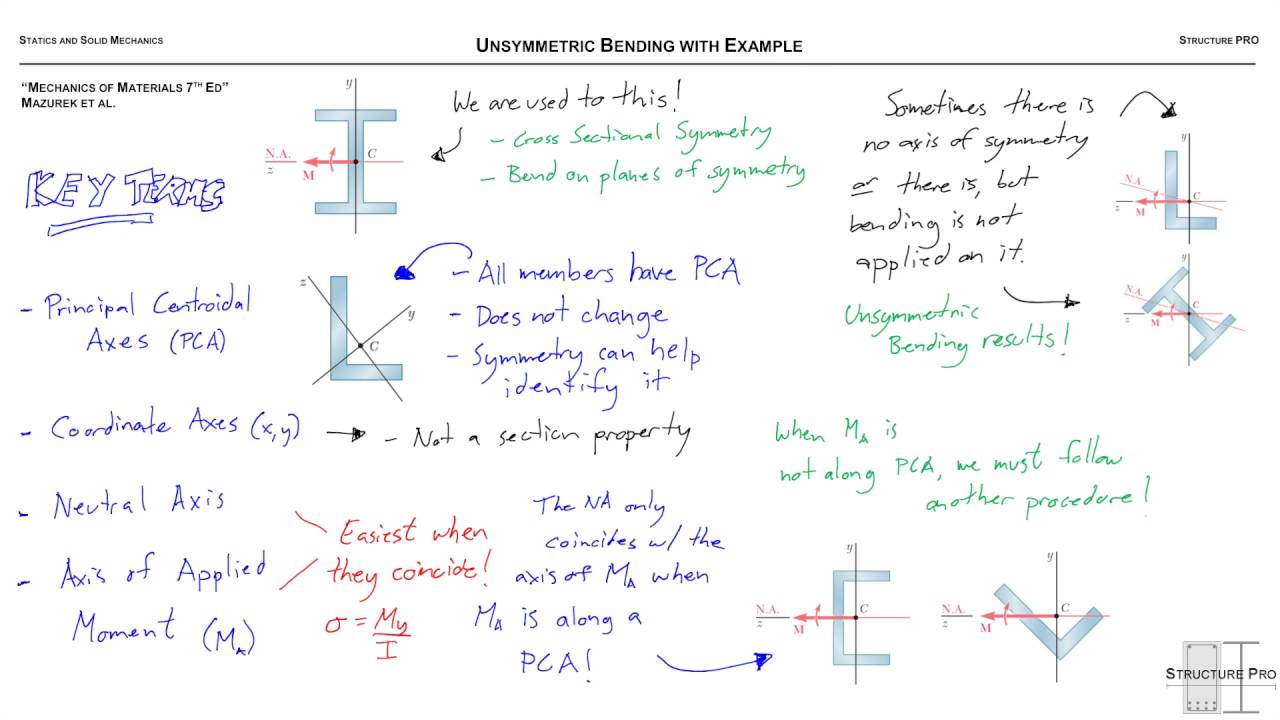 STATICS AND SOLID MECHANICS
UNSYMMETRIC BENDING WITH EXAMPLE
STRUCTURE PRO
"MECHANICS OF MATERIALS 7TH ED"
MAZUREK ET AL.
KEY TERMS
y
N.A.
z
M
C
We are used to this!
- Cross Sectional Symmetry
- Bend on planes of symmetry
Sometimes there is
no axis of symmetry
or there is, but
bending is not
applied on it.
Unsymmetric
Bending results!
y
N.A.
z
M
C
y
N.A.
z
M
C
- Principal Centroidal
Axes (PCA)
z
y
C
- All members have PCA
- Does not change
- Symmetry can help
identify it
- Coordinate Axes (x,y)
- Not a section property
- Neutral Axis
- Axis of Applied
Moment (MA)
Easiest when
they coincide!
σ = My
I
The NA only
coincides w/ the
axis of MA when
MA is along a
PCA!
When MA is
not along PCA, we must follow
another procedure!
y
N.A.
z
M
C
y
N.A.
z
M
C
STRUCTURE PRO